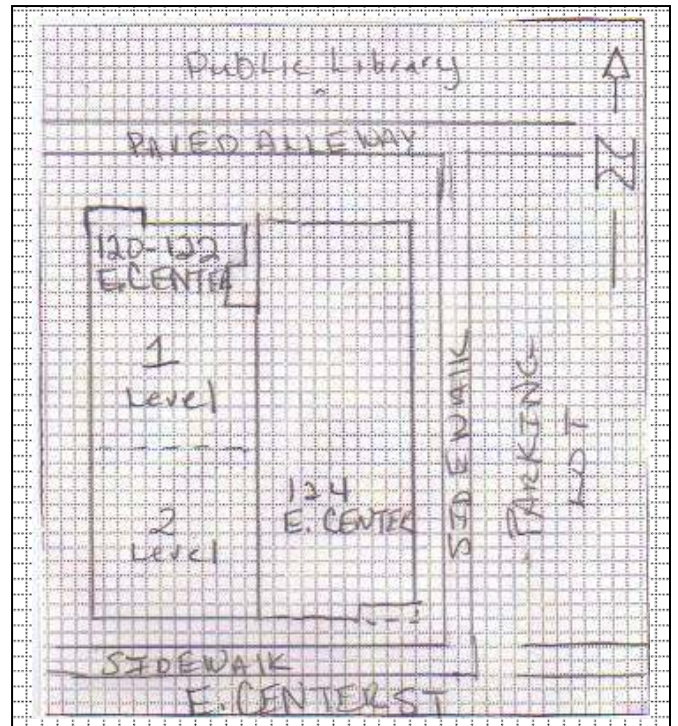 Public Library
N
PAVED ALLEWAY
120-122
E.CENTER
1
Level
2
Level
124
E. CENTER
SIDEWALK
PARKING
LOT
SIDEWALK
E. CENTER ST